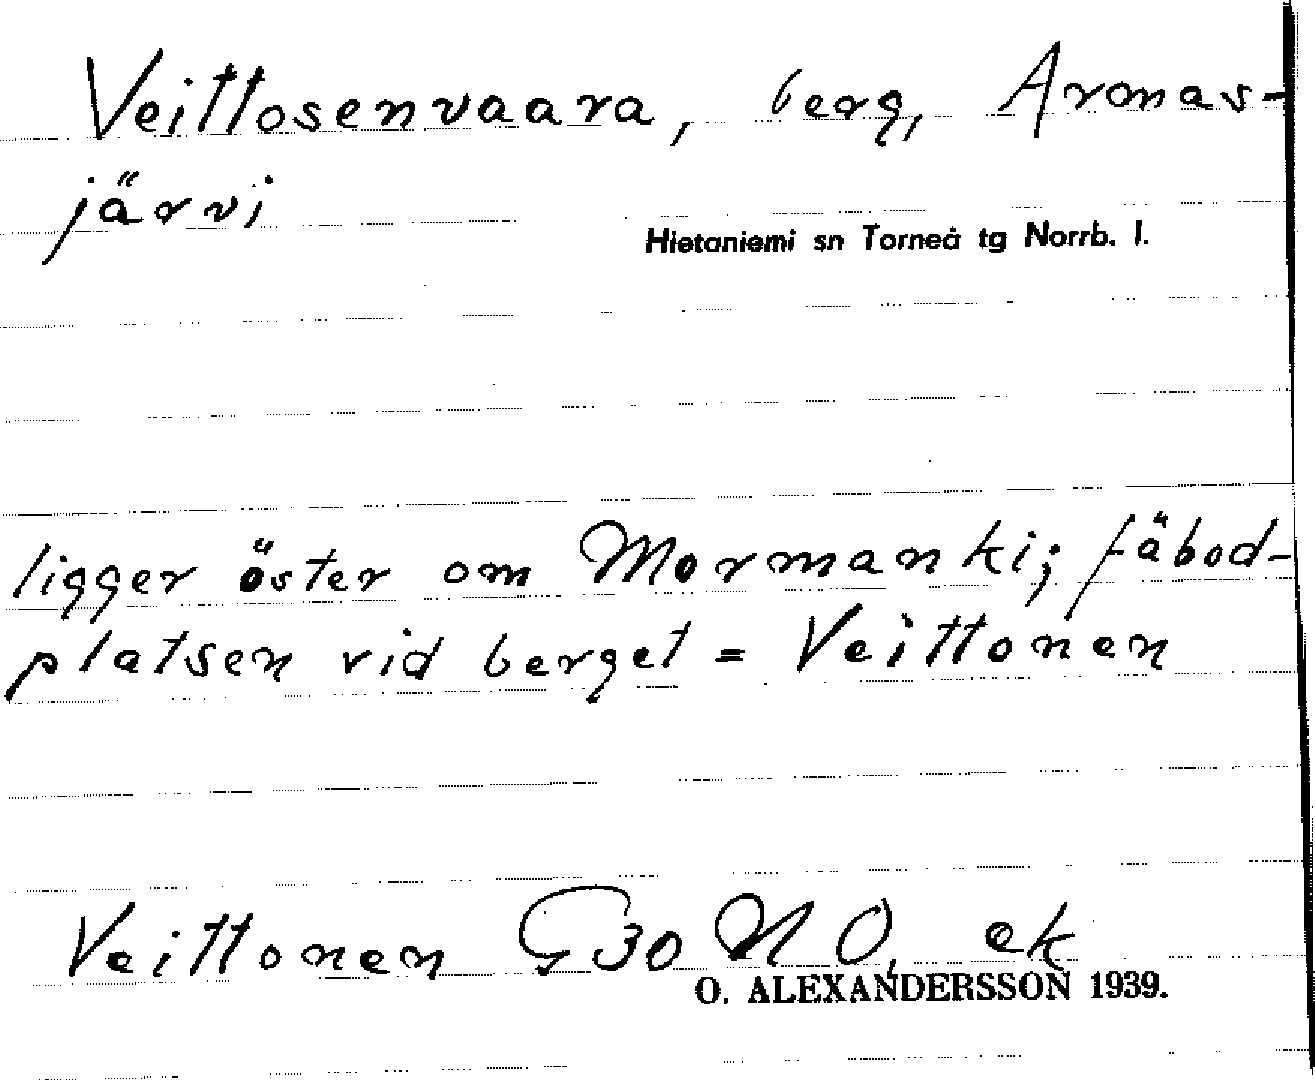 Veittosenvaara, berg, Aromas-
järvi
Hietaniemi sn Torneå tg Norrb. l.
ligger öster om Mormanki; fäbod-
platsen vid berget = Veittonen
Veittonen G 30 NO, ek
O. ALEXANDERSSON 1939.